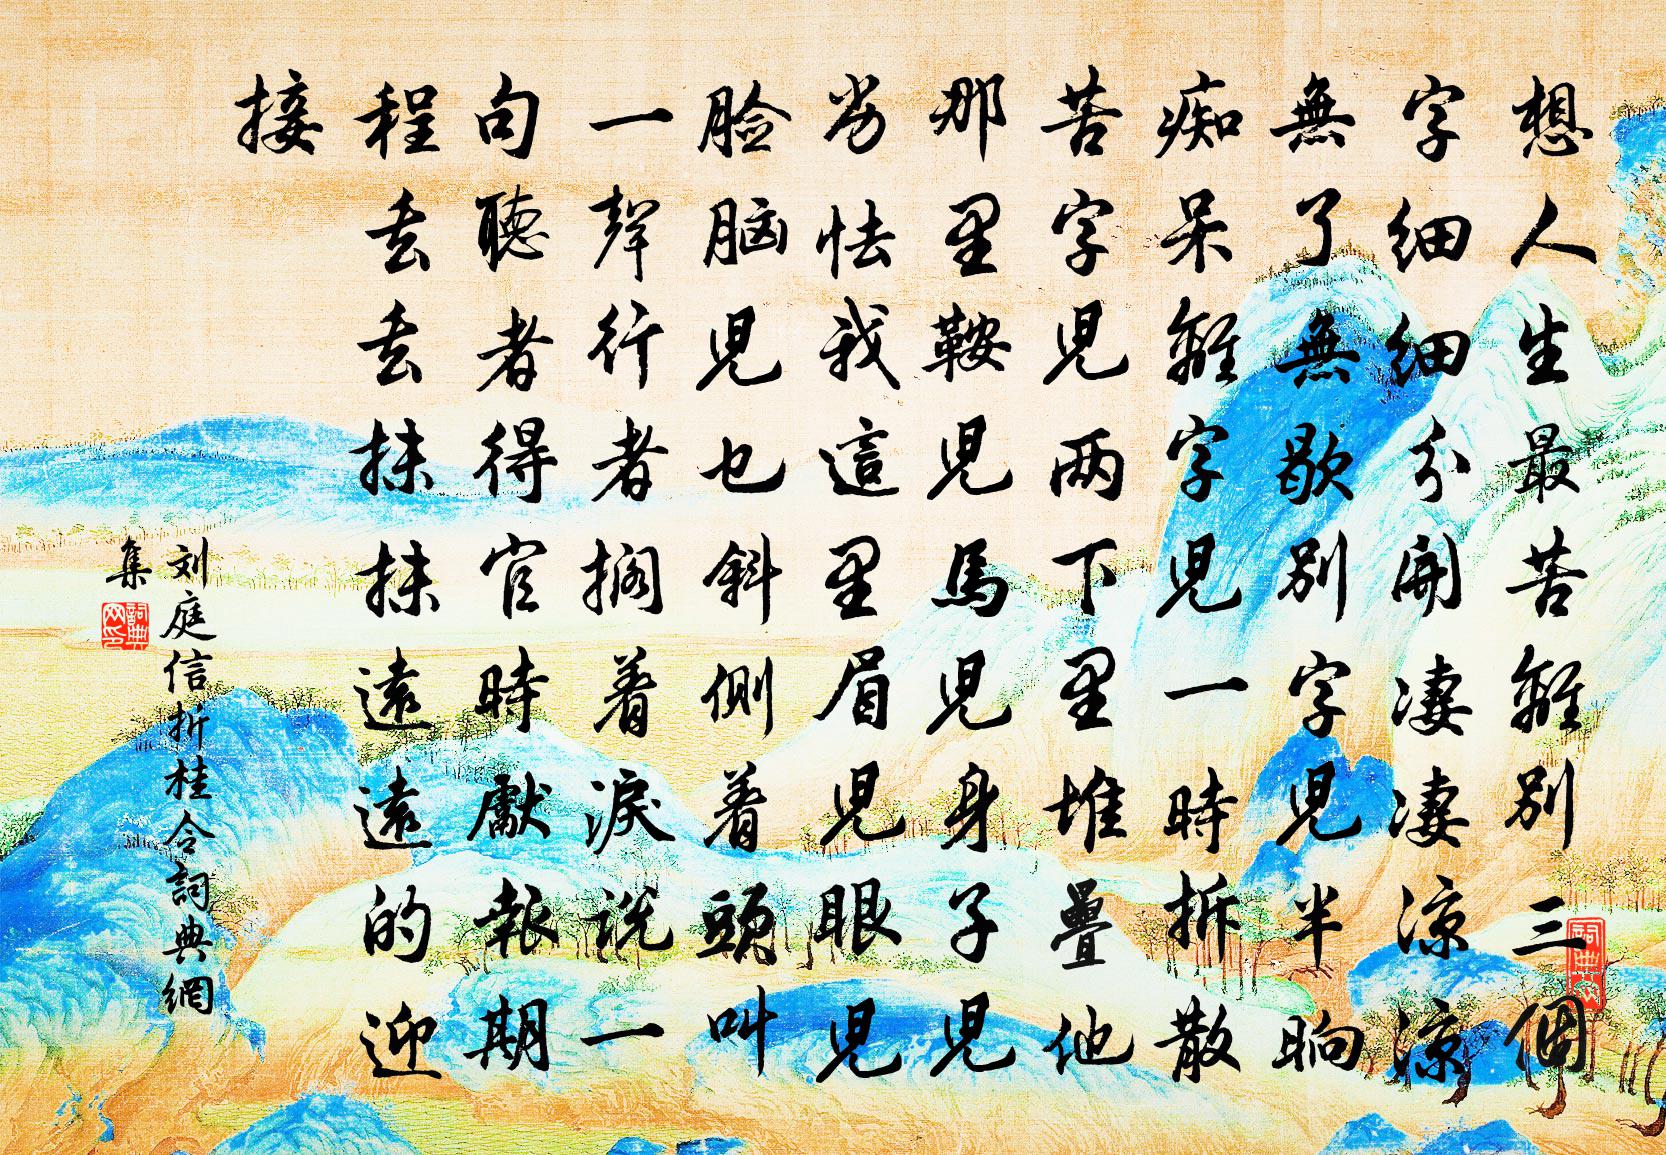 想人生最苦離別三個
字細細分開淒淒涼涼
無了無歇別字兒半晌
痴呆離字兒一時拆散
苦字兒两下里堆疊他
那里鞍兒馬兒身子兒
劣怯我這里眉兒眼兒
脸脑兒乜斜側着頭叫
一聲行者擱着淚説一
句聽者得官時獻報期
程去去抹抹遠遠的迎
接
刘庭信折桂令詞典網
集
詞典网印